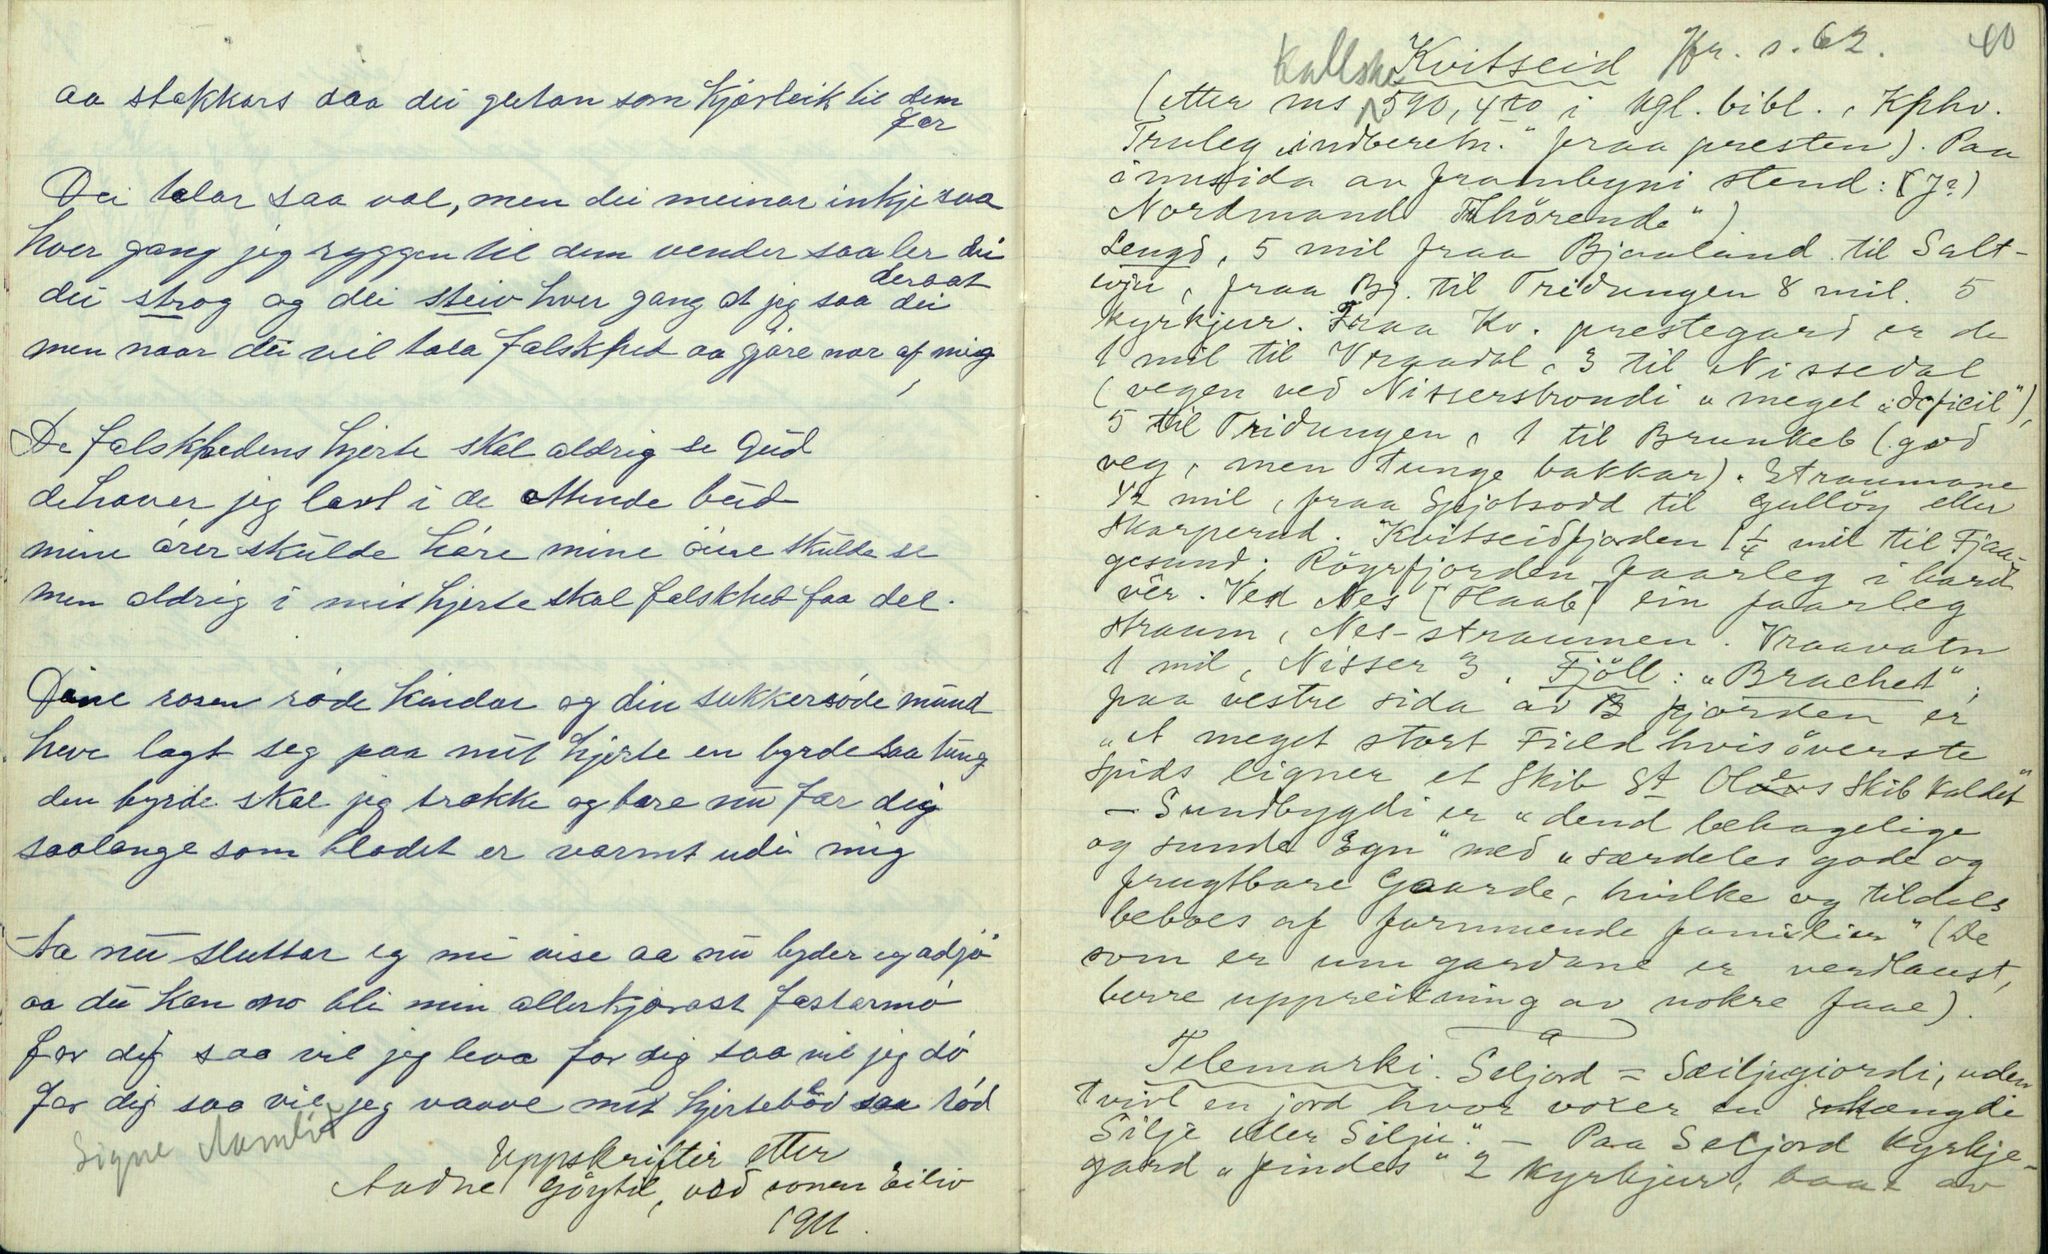 aa stakkars daa dei gutan som kjærleik til dem
før
Dei talar saa val, men dei meinar inkje saa
hver gang jeg ryggen til dem vender saa ler dei
deraat
dei strog og dei steiv hver gang at jeg saa dei
men naar dei vil tala falskhed aa gjøre nar af mig
De falskhedens hjerte skal aldrig se Gud
de haver jeg lært i de ottende bud
mine ører skulde høre mine øine skulde se
men aldrig i mit hjerte skal falskhed faa del.
Dine rosen røde kinder og din sukkersøde mund
heve lagt seg paa mit hjerte en byrde saa tung
den byrde skal jeg trække og bære nu før dig
saalænge som blodet er varmt udi mig
Aa nu sluttar eg mi vise aa nu byder eg adjø
aa du kan no bli min allerkjærast fæstarmø
for dig saa vil jeg leva for dig saa vil jeg dø
for dig saa vil jeg vaave mit hjerteblod saa rød
Signe Aamlid
Uppskrifter etter
Aadne Gøytil, ved sonen Eiliv
1911.
Kvitseid Jfr. s. 62. 40
Kallske
(etter ms 590, 4to i kgl. bibl., Kphv.
Truleg „indberetn." fraa presten). Paa
innsida av frambyni stend: (J?)
Nordmand Tilhörende")
Lengd, 5 mil fraa Bjaaland til Salt-
evju, fraa Bj. til Tridungen 8 mil. 5
kyrkjur. Fraa Kv. prestegard er de
1 mil til Vraadal, 3 til Nissedal
(vegen ved Nisserstrondi „meget „deficil"),
5 til Tridungen, 1 til Brunkeb (god
veg, men tunge bakkar). Straumane
1/2 mil, fraa Spjotsodd til Gulløy eller
Skarperud. Kvitseidfjorden 1 1/4 mil til Fjaa-
gesund; Röyrfjorden faarleg i hardt
vêr. Ved Nes [Haab] ein faarleg
straum, Nes-straumen. Vraavatn
1 mil, Nisser 3. Fjöll: „Brachet";
paa vestre sida av fjorden er
„et meget stort Field hvis överste
Spids ligner et Skib St Olaes Skib kaldet"
– Sundbygdi er „dend behagelige
og sunde Egn" med „særdeles gode og
frugtbare Gaarde, hvilke og tildels
beboes af formuende familier" (De
som er um gardane er verdlaust,
berre uppreikning av nokre faae).
Telemarki. Seljord = Sæiljugiordi, uden
tvivl en jord hvor voxer en mængde
Silje eller Selju". – Paa Seljord kyrkje-
gard „findes" 2 kyrkjur, baae av